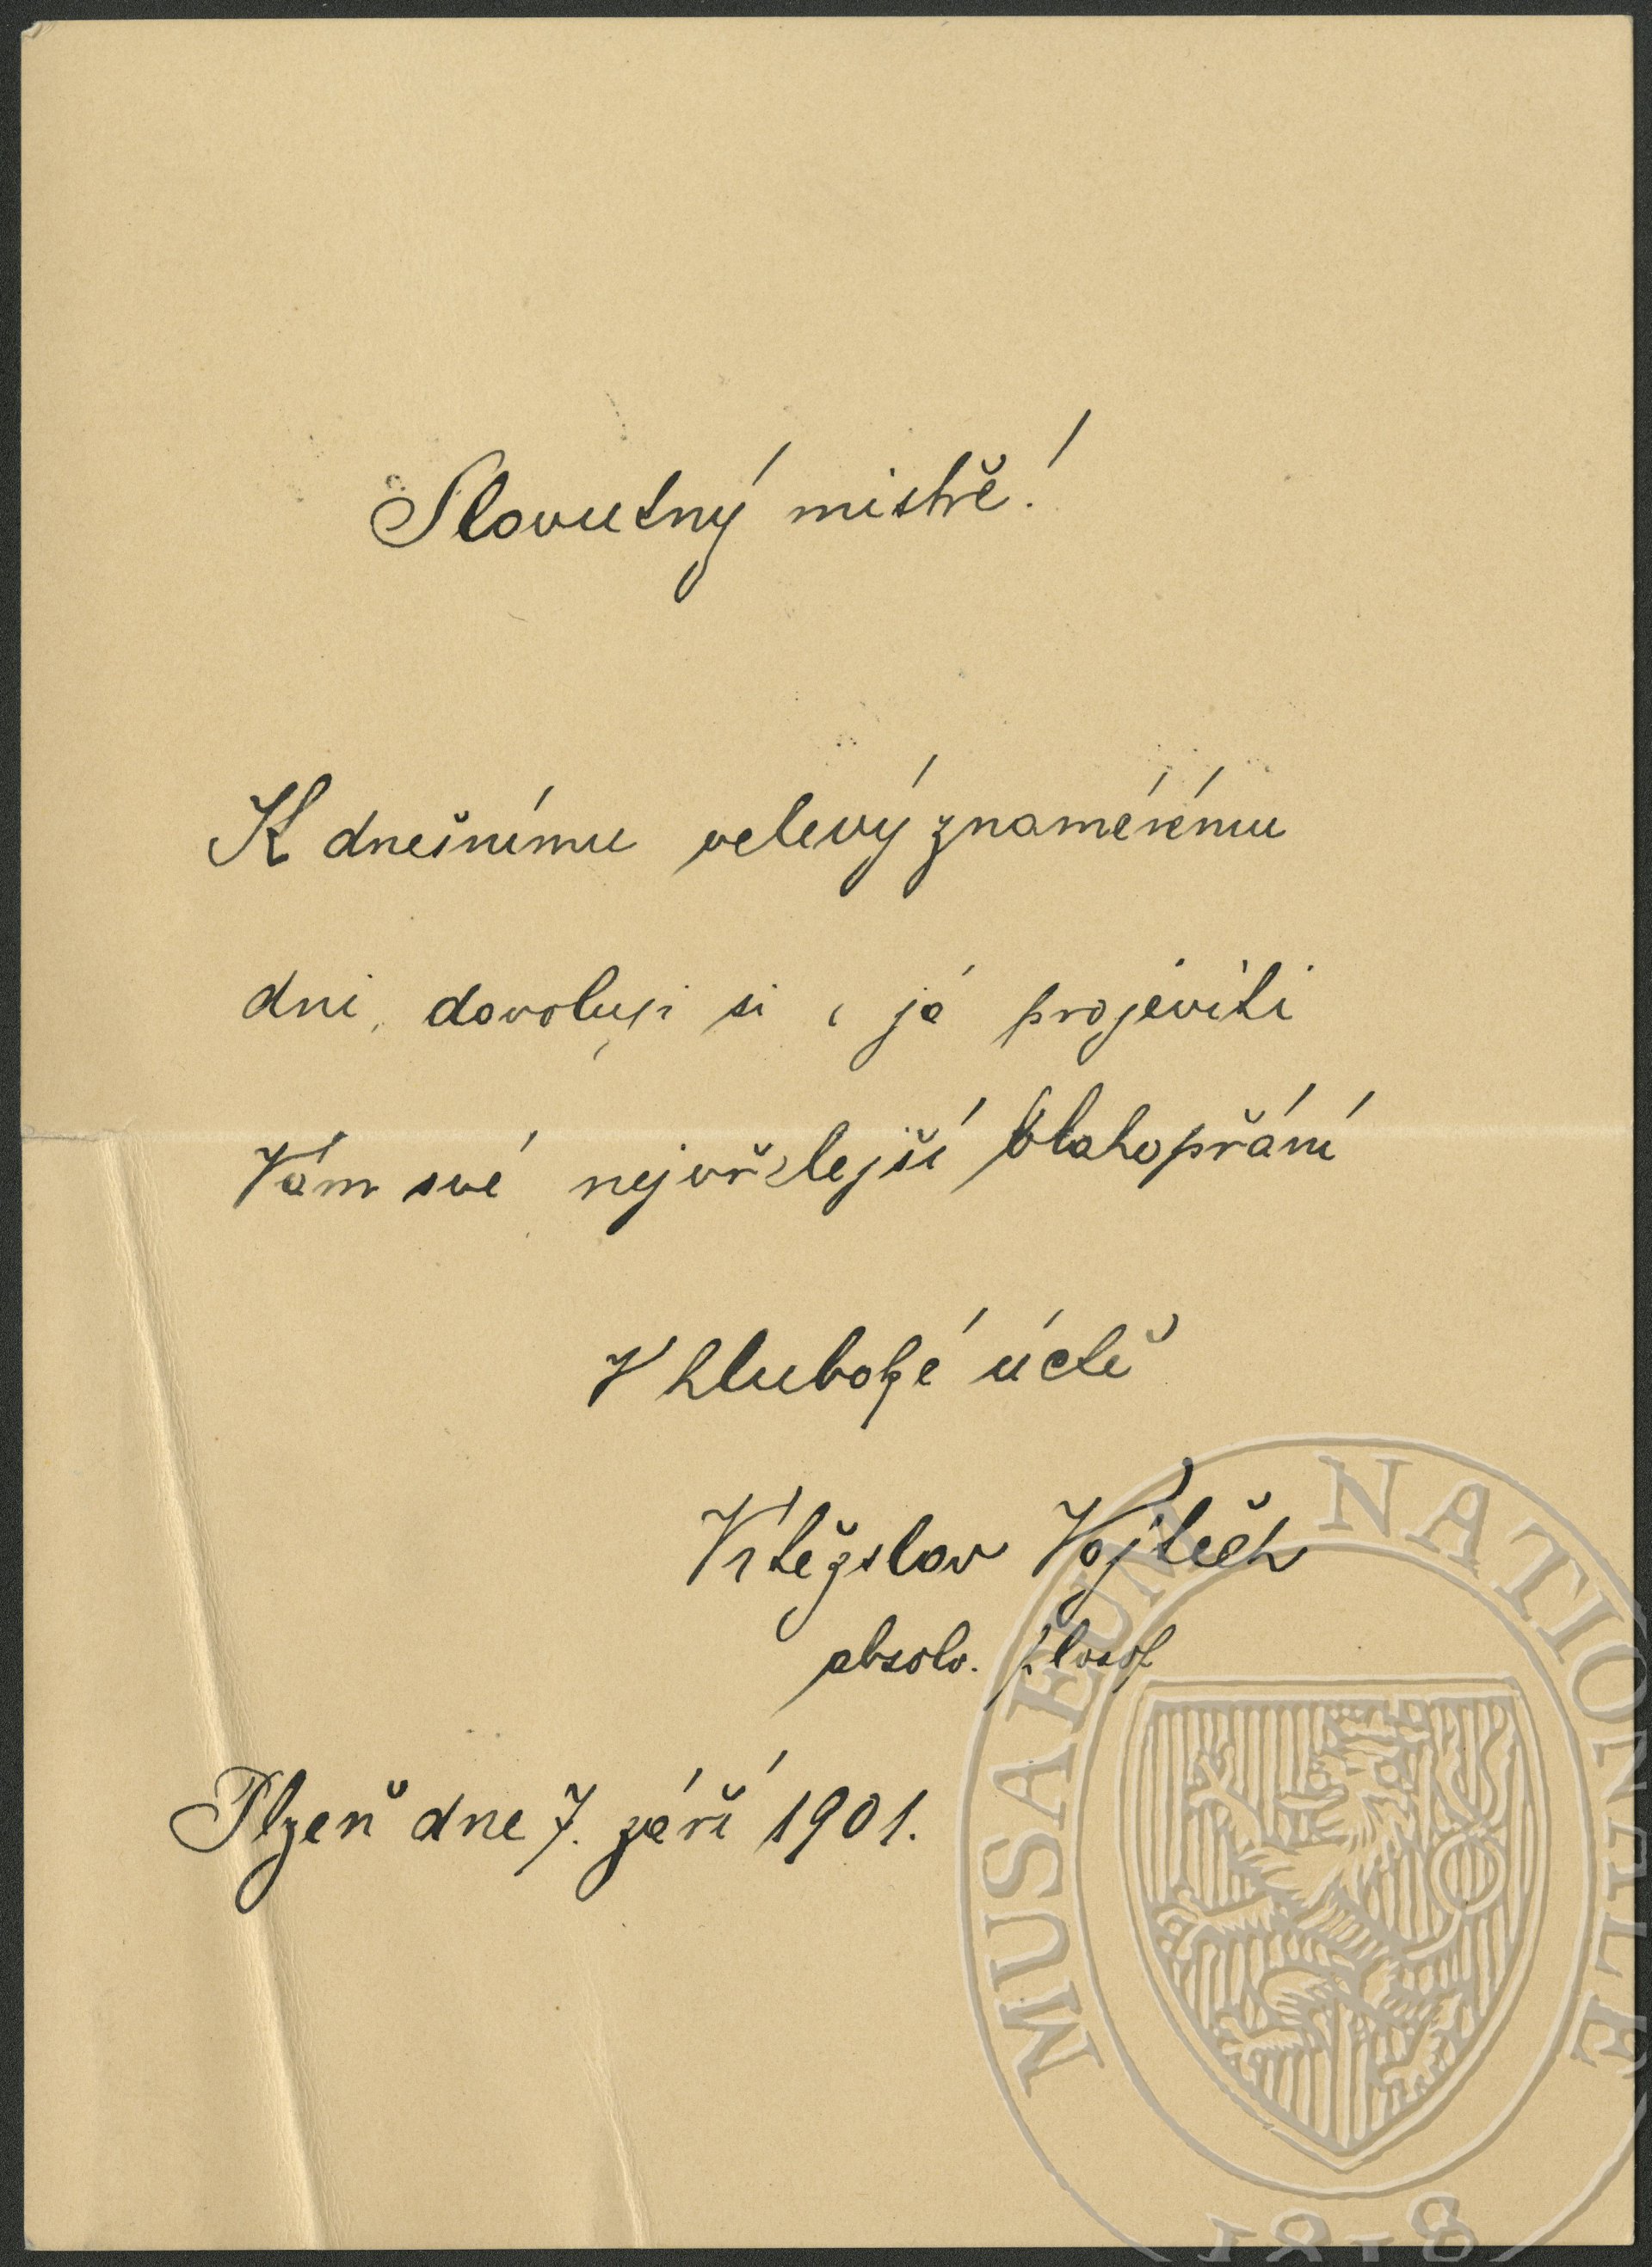 Slovutný mistře!
K dnešnímu velevýznamému
dni, dovoluji si i já projeviti
Vám své nejvřelejší blahopřání
V hluboké úctě
Vítězslav Vojtěch
absolv. filosof
Plzeň dne 7. září 1901.
MUSAEUM NATIONALE
1818